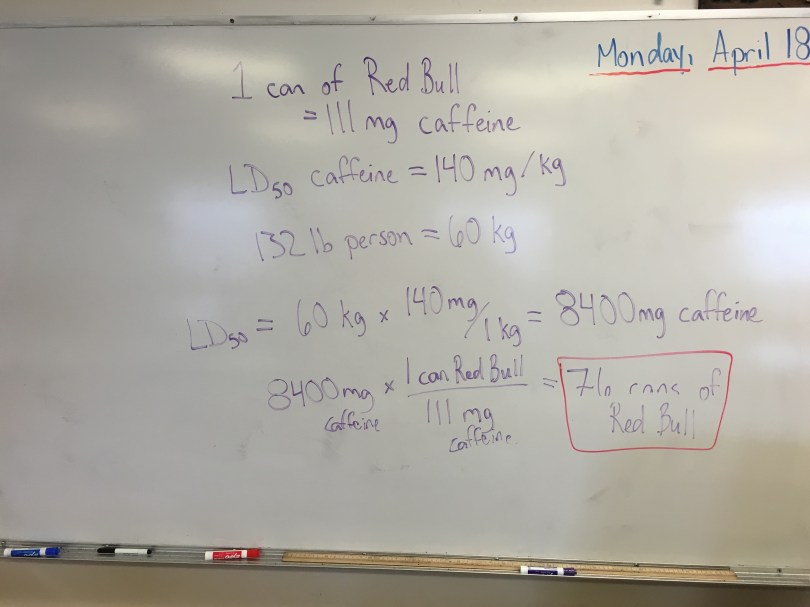 Monday, April 18
1 can of Red Bull
= 111 mg caffeine
LD50 caffeine = 140 mg/kg
132 lb person = 60 kg
LD50 = 60 kg × 140 mg/1 kg = 8400 mg caffeine
8400 mg caffeine × 1 can Red Bull / 111 mg caffeine = 76 cans of
Red Bull